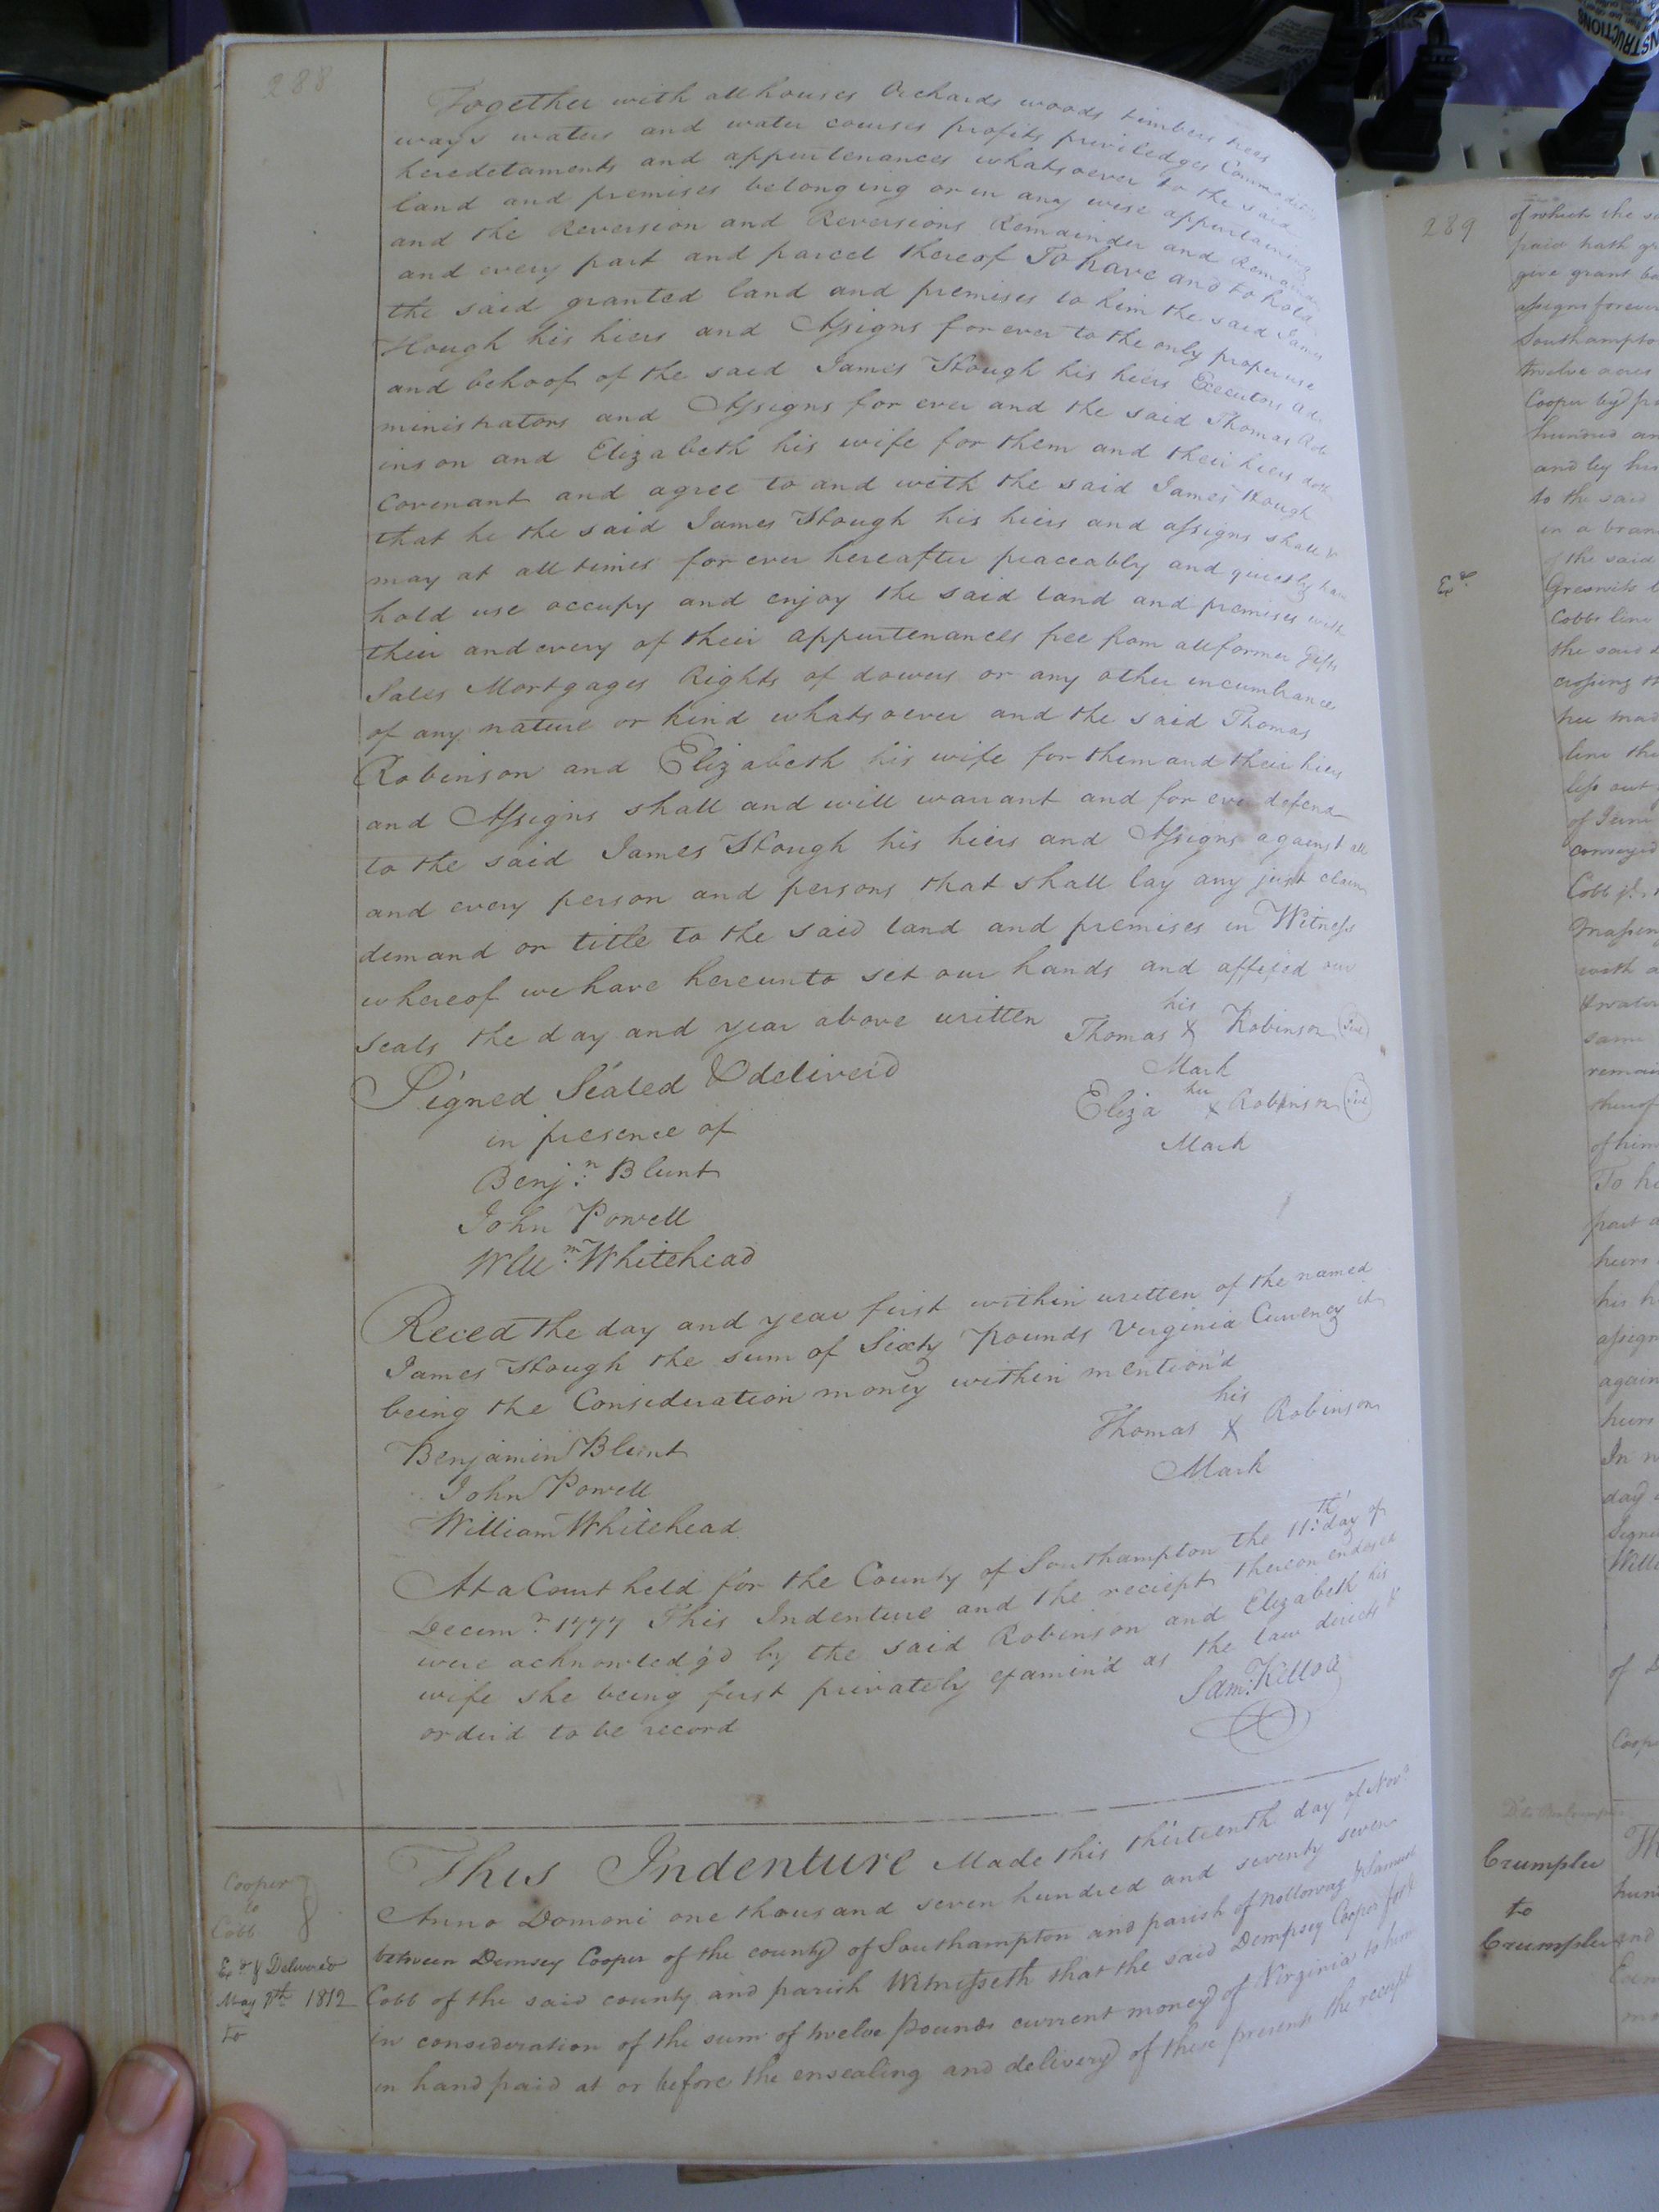 288
Together with all houses Orchards woods timbers trees
ways waters and water courses profits priviledges Commodities
heredetaments and appurtenances whatsoever to the said
land and premises belonging or in any wise appertaining
and the Reversion and Reversions Remainder and Remainders
and every part and parcel thereof To have and to hold
the said granted land and premises to him the said James
Hough his hiers and Assigns forever to the only proper use
and behoof of the said James Hough his hiers Executors ad
ministrators and Assigns for ever and the said Thomas Rob
inson and Elizabeth his wife for them and their hiers doth
Covenant and agree to and with the said James Hough
that he the said James Hough his hiers and assigns shall &
may at all times for ever hereafter peaceably and quietly have
hold use occupy and enjoy the said land and premises with
their and every of their appurtenances free from all former Gifts
Sales Mortgages Rights of dowers or any other incumbrances
of any nature or kind whatsoever and the said Thomas
Robinson and Elizabeth his wife for them and their hiers
and Assigns shall and will warrant and for ever defend
to the said James Hough his hiers and Assigns against all
and every person and persons that shall lay any just claim
demand or title to the said land and premises in Witness
whereof we have hereunto set our hands and affixed our
seals the day and year above written
his
Thomas X Robinson
Mark
Signed Sealed & deliver'd
her
Eliza X Robinson
Mark
in presence of
Benj.n Blunt
John Powell
Will.m Whitehead
Receed the day and year first within written of the named
James Hough the sum of Sixty Pounds Virginia Currency it
being the Consideration money within mention'd
his
Thomas X Robinson
Mark
Benjamin Blunt
John Powell
William Whitehead
At a Court held for the County of Southampton the 11.th day of
Decem.r 1777 This Indenture and the reciept thereon endorsed
were acknowledg'd by the said Robinson and Elizabeth his
wife she being first privately examin'd as the law directs &
order'd to be record
Sam: Kello
Cooper
to
Cobb
Ex.d & Delivered
May 7th 1812
to
This Indenture Made this thirteenth day of Nov.r
Anno Domoni one thousand seven hundred and seventy seven
between Demsey Cooper of the county of Southampton and parish of Nottoway & Samuel
Cobb of the said county and parish Witnesseth that the said Dempsey Cooper for &
in consideration of the sum of twelve pounds current money of Virginia to him
in hand paid at or before the ensealing and delivery of these presents the receipt
289
of which the
paid hath
give grant
assigns forever
Southampto
twelve acres
Cooper by
hundred an
and by his
to the said
in a bran
of the said
Ex.d
Cobbs line
the said
crossing
line the
less out
of June
conveyed
Cobb
with a
same
remain
thereof
of him
To ha
part a
heirs
his h
assign
again
heirs
In w
day
Signe
Will
of
Coop
Crumpler
to
Crumpler